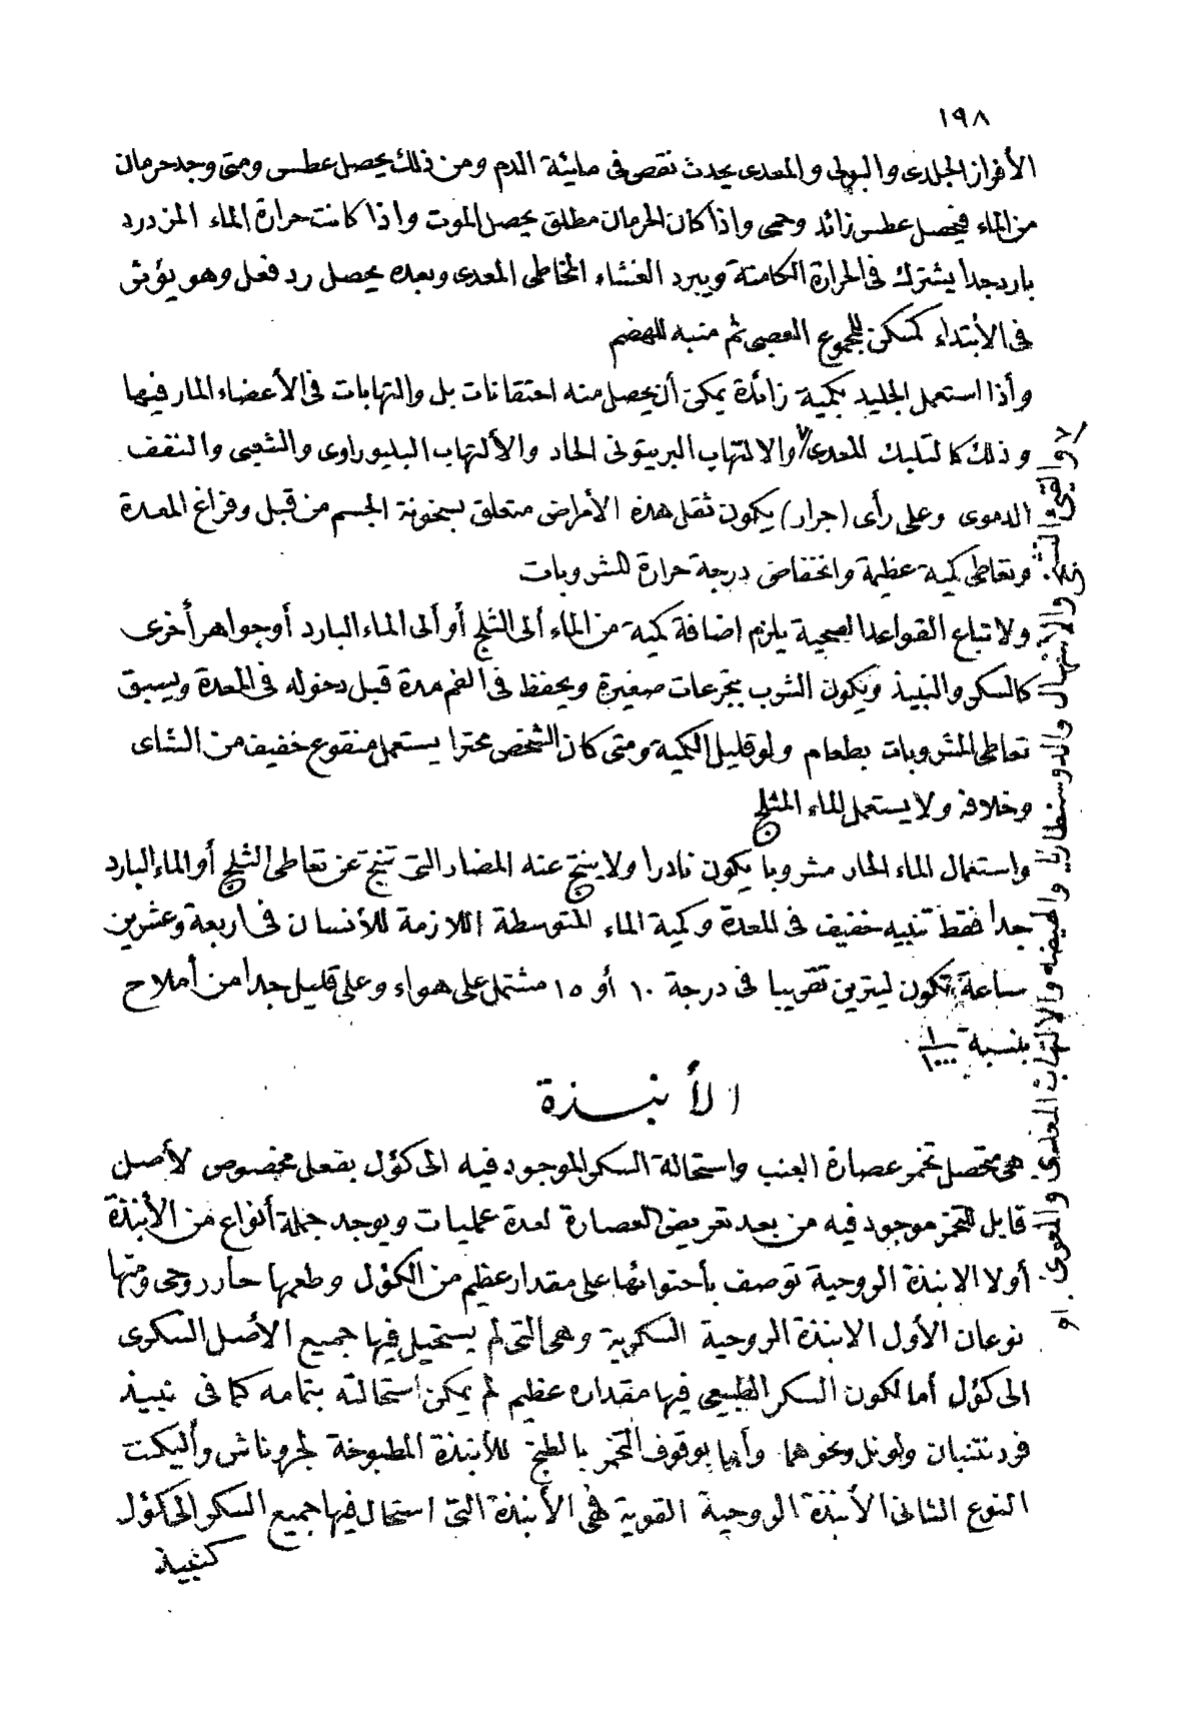 ١٩٨
الأفراز الجلدى والبولى والمعدى يحدث نقص فى مائية الدم ومن ذلك يحصل عطس ومتى وجد حرمان
من الماء فيحصل عطس زائد وحمى واذا كان الحرمان مطلق يحصل الموت واذا كانت حرارة الماء المزدرد
بارد جدا يشترك فى الحرارة الكامنة ويبرد الغشاء المخاطى المعدى وبعده يحصل رد فعل وهو يؤثر
فى الأبتداء كمسكن للمجموع العصبى ثم منبه للهضم
وأذا استعمل الجليد بكمية زائدة يمكن أن يحصل منه احتقانات بل والتهابات فى الأعضاء المار فيها
وذلك كالتلبك المعدى والالتهاب البريتونى الحاد والألتهاب البليوراوى والشعبى والنفف
الدموى وعلى رأى (جرار) يكون ثقل هذه الأمراض متعلق بسخونة الجسم من قبل وفراغ المعدة
وتعاطى كمية عظيمة وانخفاض درجة حرارة المشروبات
ولاتباع القواعد الصحية يلزم اضافة كمية من الماء ألى الثلج أو ألى الماء البارد أو جواهر أخرى
كالسكر والنبيذ ويكون الشرب بجرعات صغيرة ويحفظ فى الفم مدة قبل دخوله فى المعدة ويسبق
تعاطى المشروبات بطعام ولو قليل الكمية ومتى كان الشخص محترا يستعمل منقوع خفيف من الشاى
وخلافه ولا يستعمل الماء المثلج
واستعمال الماء الحار مشروبا يكون نادرا ولا ينتج عنه المضار التى تنتج عن تعاطى الثلج أو الماء البارد
جدا فقط تنبيه خفيف فى المعدة وكمية الماء المتوسطة اللازمة للأنسان فى اربعة وعشرين
ساعة تكون ليترين تقريبا فى درجة ١٠ أو ١٥ مشتمل على هواء وعلى قليل جدا من أملاح
بنسبة ١/١٠٠٠
الأنبذة
هى متحصل تخمر عصارة العنب واستحالة السكر الموجود فيه الى كؤل بفعل مخصوص لأصل
قابل للتخمر موجود فيه من بعد تعريض العصارة لعدة عمليات ويوجد جملة أنواع من الأنبذة
أولا الانبذة الروحية توصف بأحتوائها على مقدار عظيم من الكؤل وطعمها حار روحى ومنها
نوعان الأول الانبذة الروحية السكرية وهى التى لم يستحيل فيها جميع الأصل السكرى
الى كؤل أما لكون السكر الطبيعى فيها مقداره عظيم لم يمكن استحالته بتمامه كما فى نبيذ
فرنتنيان ولونل ونحوهما وأما بوقوف التخمر بالطبخ للأنبذة المطبوخة لجروناش وأليكت
النوع الثانى الأنبذة الروحية القوية هى الأنبذة التى استحال فيها جميع السكر الى كؤل
كنبيذ
والقئ والتشنج والأسهال والدوسنطاريا والهيضه والالتهاب المعدى والمعوى